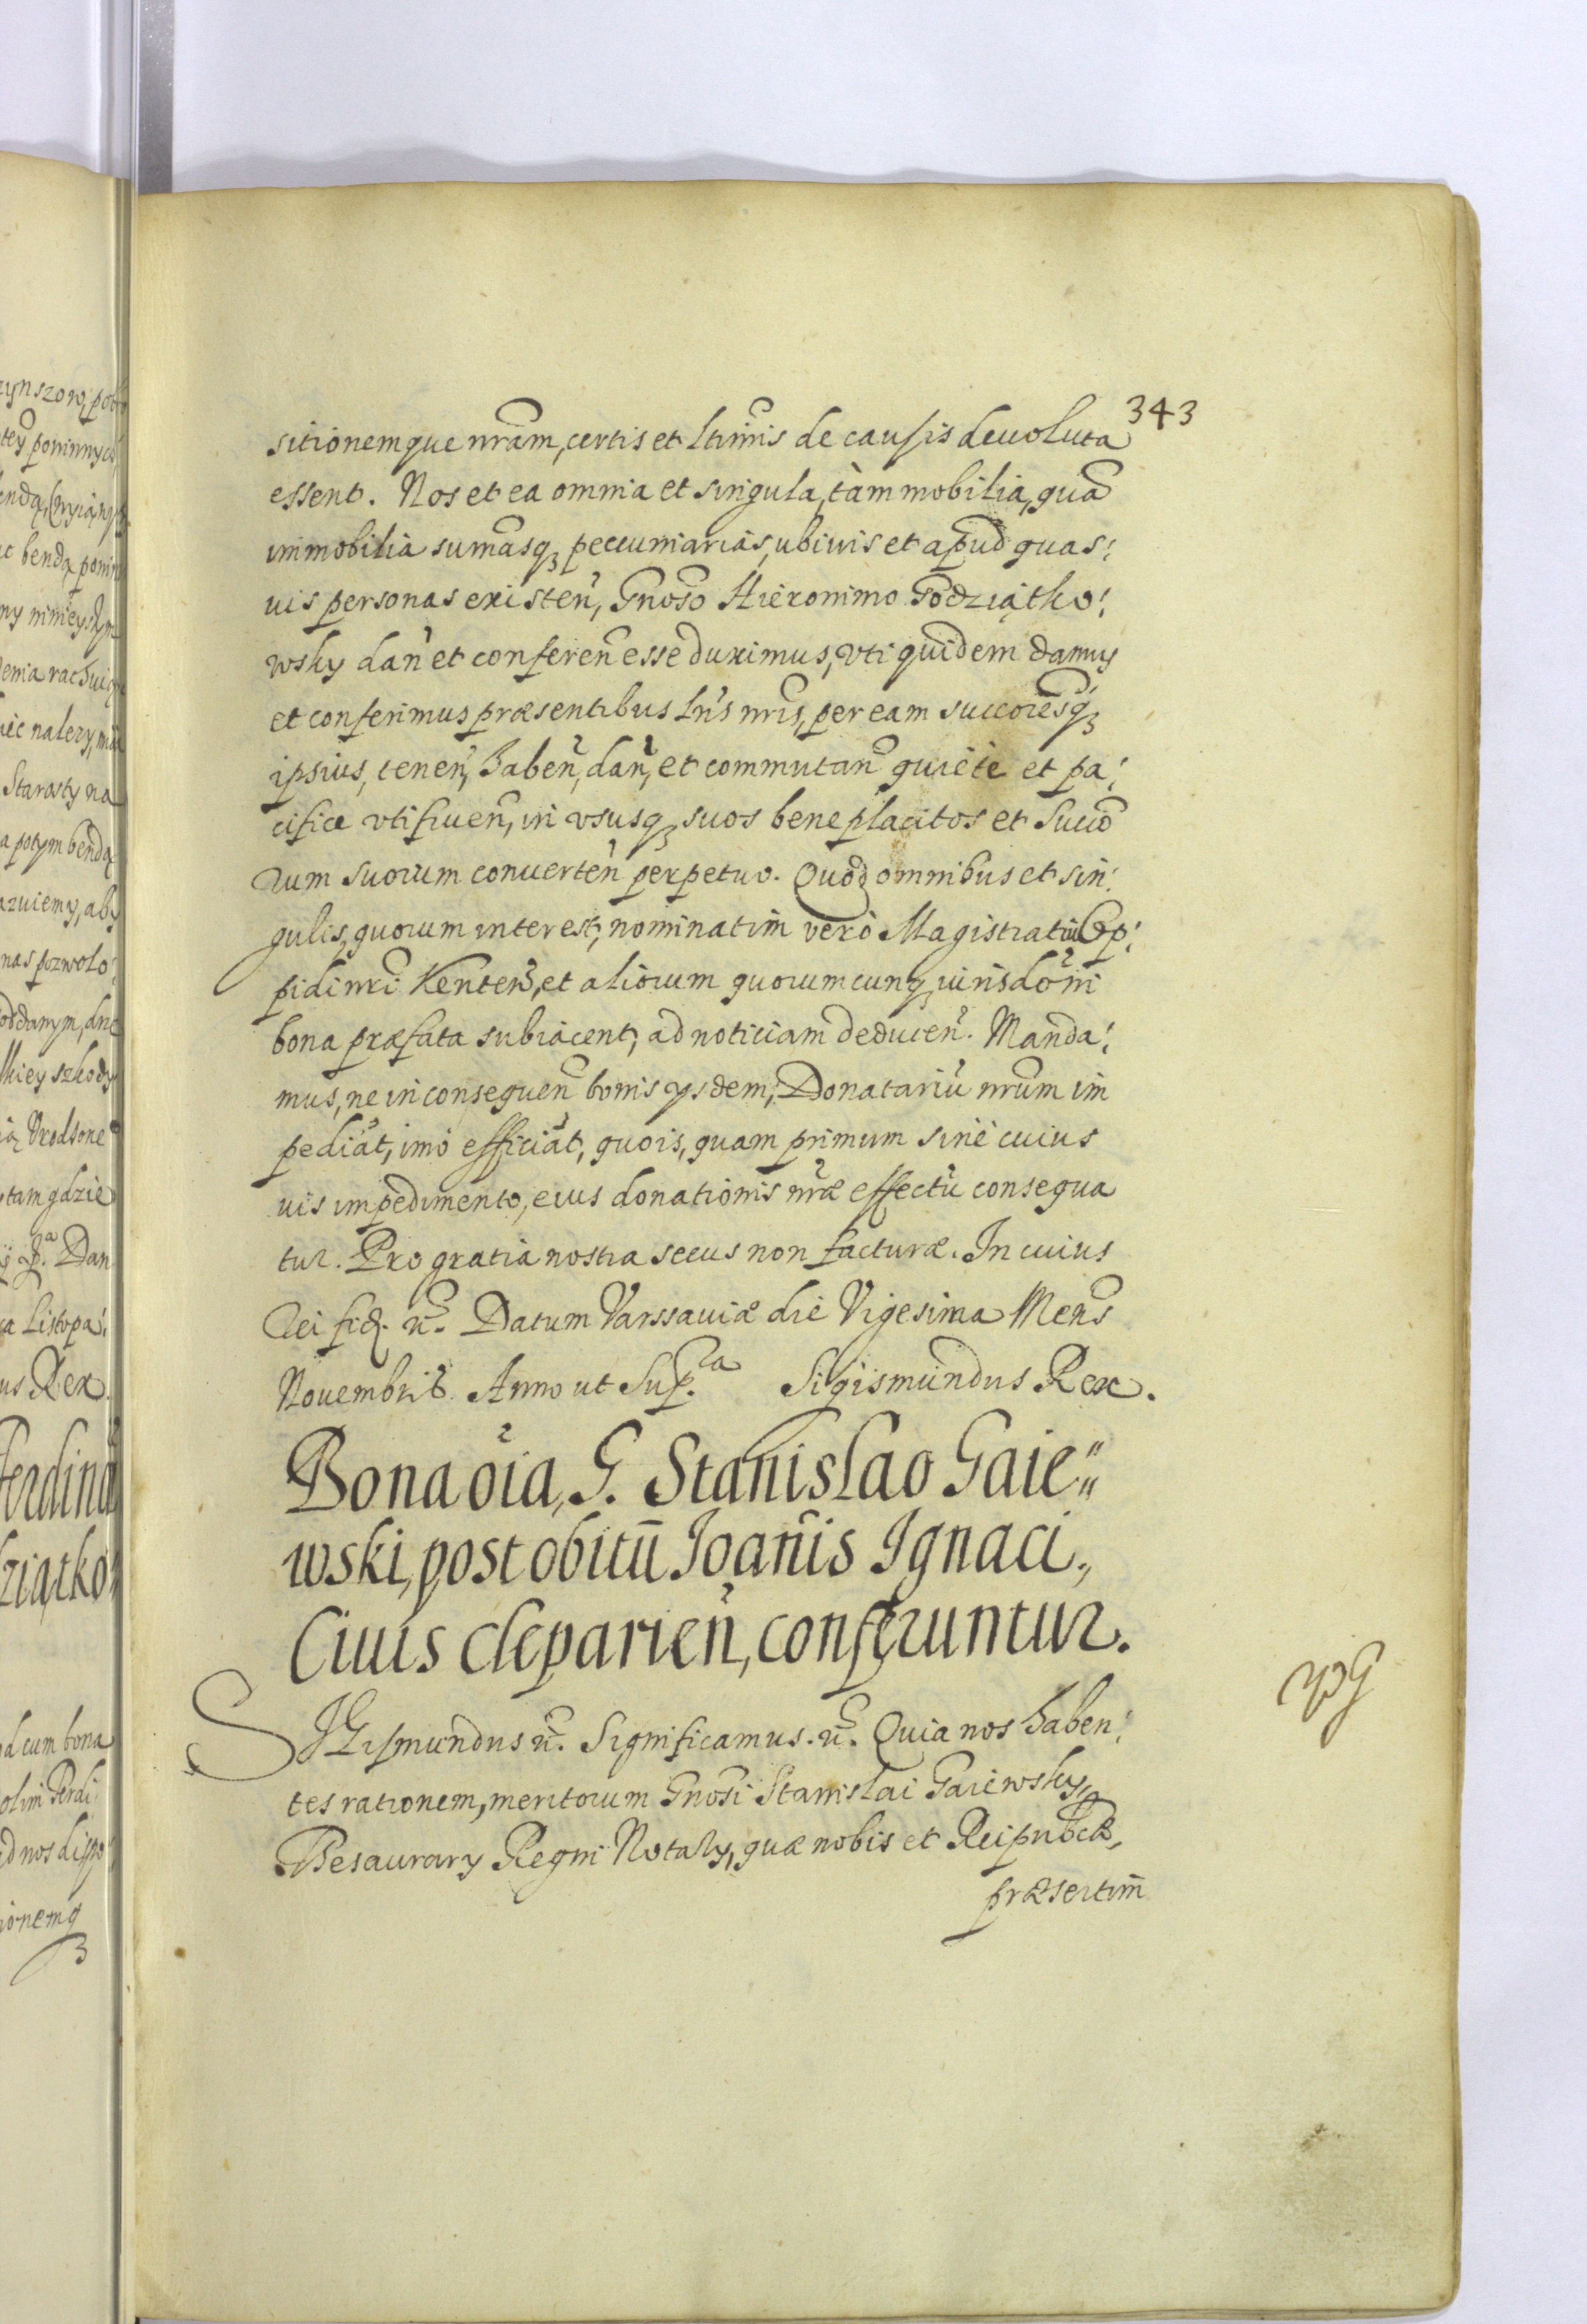 343
sitionemque nram, certis et ltimis de causis deuoluta
essent. Nos et ea omnia et singula, tàm mobilia, quã
immobilia sumasq₃ pecuniarias, ubiuis et apud quas:
uis personas existeñ, Gnoso Hieronimo Godziątko:
wsky dañ et conferen esse duximus, vti quidem damus
et conferimus præsentibus lrīs nrīs, per eam succoresq₃
ipsius, teneñ, habeñ, dañ, et commutañ quietè et pa:
cificæ vtifrueñ, in vsusq₃ suos beneplacitos et Succo
rum suorum conuerteñ perpetuo. Quod omnibus et sin:
gulis, quorum interest, nominatim verò Magistratui Op:
pidi nri Kenteñ, et aliorum quorumcunq₃ iurisdoni
bona præfata subiacent, ad noticiam deduceñ. Manda:
mus, ne in consequen bonis ysdem, Donatariũ nrum im
pediãt, imò efficiãt, quois, quam primum sine cuius
uis impedimento, eius donationis nræ effectũ consequa
tur. Pro gratia nostra secus non facturæ. In cuius
rei fid. rc. Datum Varssauiæ die Vigesima Mens
Nouembris. Anno ut Sup.ª Sigismundus Rex.
Bona oĩa, G. Stanislao Gaie„
wski, post obitū Joañis Ignaci,
Ciuis cleparieñ, conferuntur.
SIGismundus rc. Significamus. rc. Quia nos haben:
tes rationem, meritorum Gnosi Stanislai Gaiewsky,
Thesaurary Regni Notary, quæ nobis et Reipubcæ,
præsertim